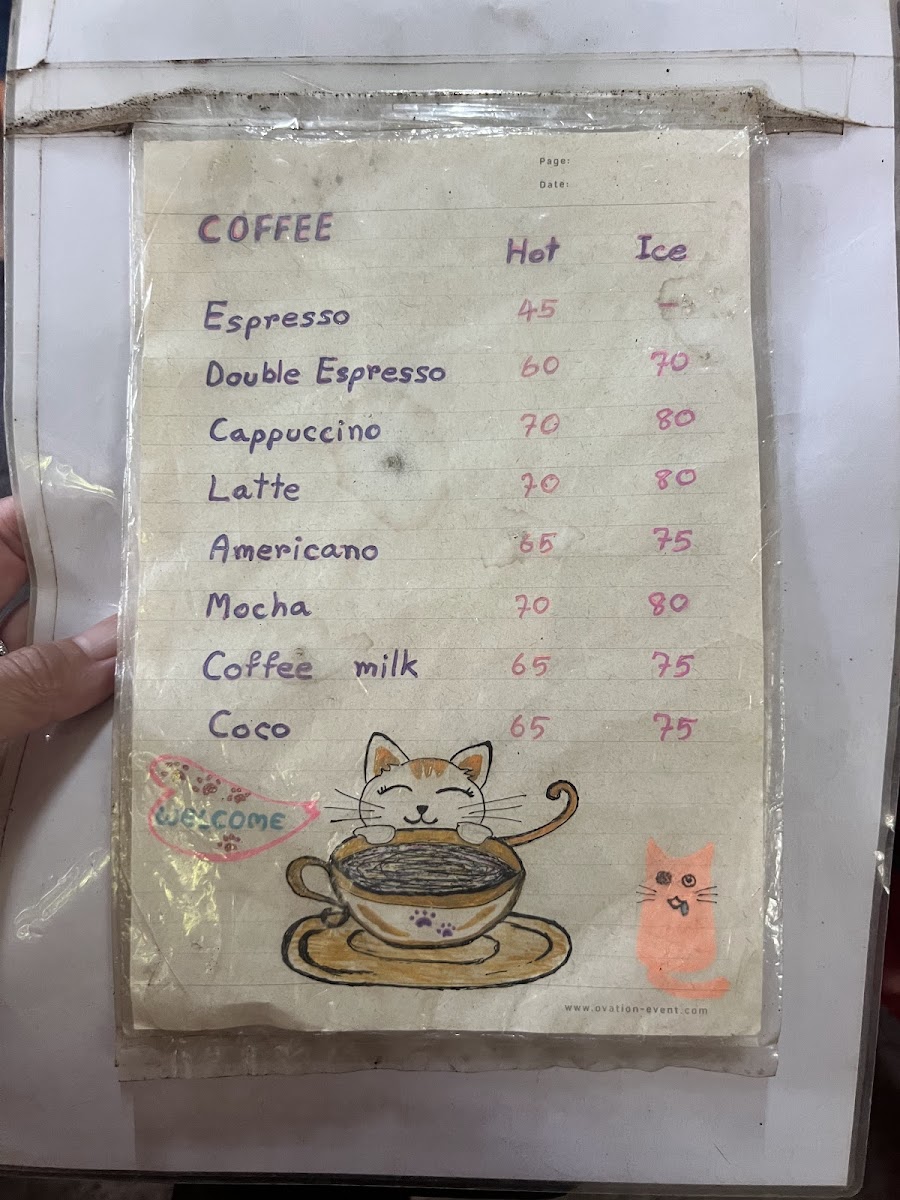 Page:
Date:
COFFEE
Hot Ice
Espresso 45 -
Double Espresso 60 70
Cappuccino 70 80
Latte 70 80
Americano 65 75
Mocha 70 80
Coffee milk 65 75
Coco 65 75
WELCOME
www.ovation-event.com